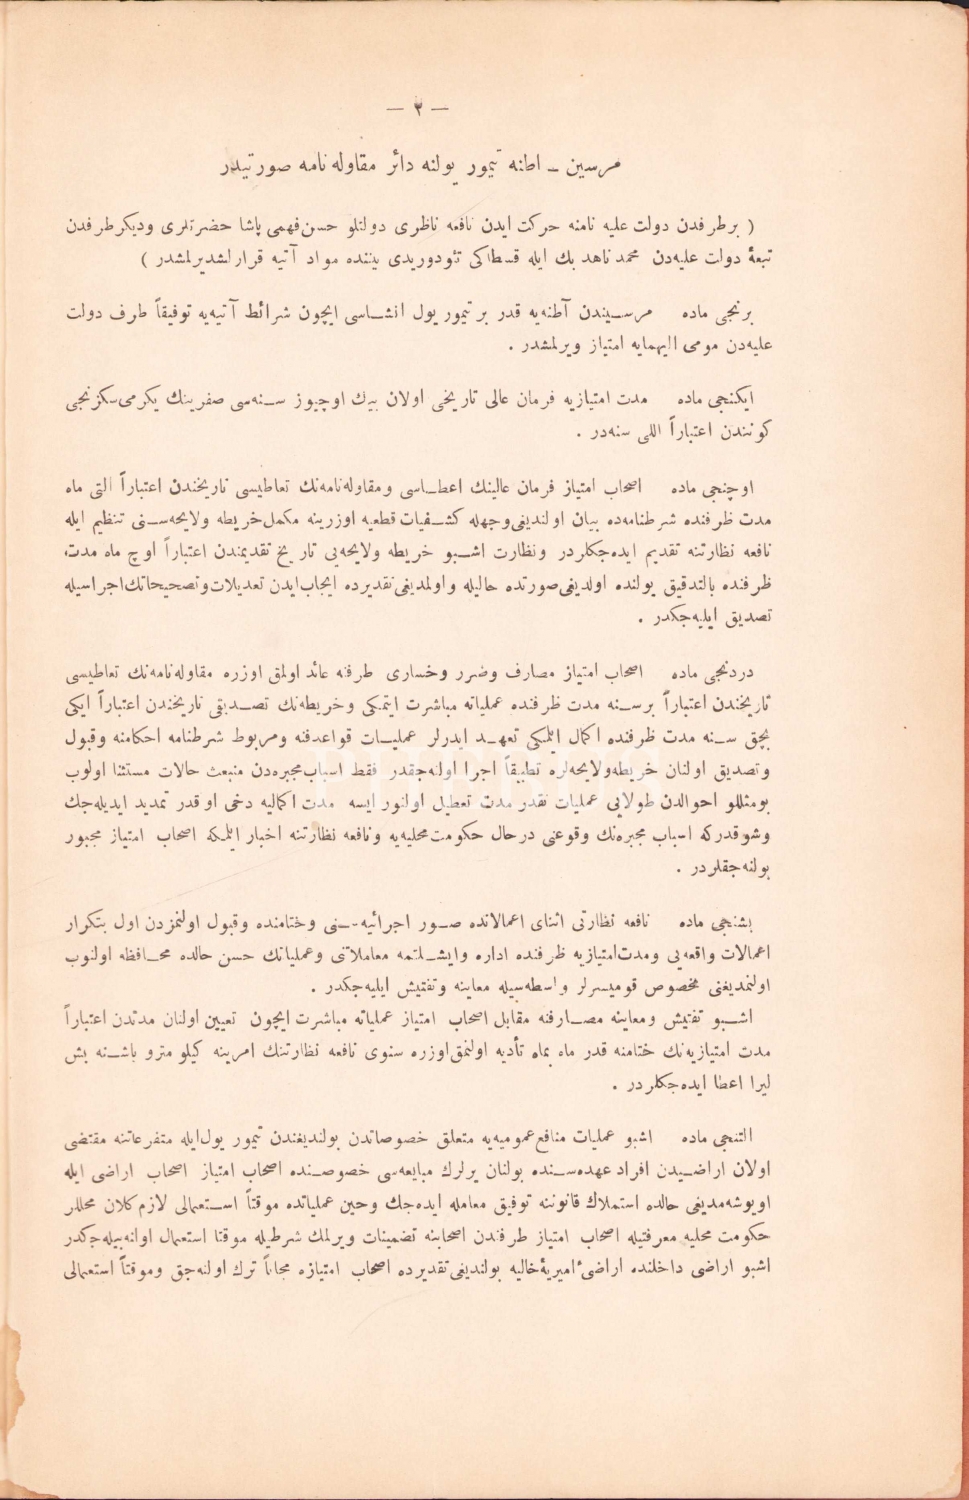 — ٣ —
مرسین ــ اطنه تیمور یولنه دائر مقاوله نامه صورتیدر
( برطرفدن دولت علیه نامنه حرکت ایدن نافعه ناظری دولتلو حسن فهمی پاشا حضرتلری ودیکر طرفدن
تبعۀ دولت علیه‌دن محمد ناهد بك ایله قسطاکی تئودوریدی بیننده مواد آتیه قرارلشدیرلمشدر )
برنجی ماده مرسیندن آطنه‌یه قدر بر تیمور یول انشاسی ایچون شرائط آتیه‌یه توفیقاً طرف دولت
علیه‌دن مومی الیهمایه امتیاز ویرلمشدر .
ایکنجی ماده مدت امتیازیه فرمان عالی تاریخی اولان بیك اوچیوز سنه‌سی صفرینك یکرمی سکزنجی
کونندن اعتباراً اللی سنه‌در .
اوچنجی ماده اصحاب امتیاز فرمان عالینك اعطاسی ومقاوله‌نامه‌نك تعاطیسی تاریخندن اعتباراً التی ماه
مدت ظرفنده شرطنامه‌ده بیان اولندیغی‌وجهله کشفیات قطعیه اوزرینه مکمل‌خریطه ولایحه‌سنی تنظیم ایله
نافعه نظارتنه تقدیم ایده‌جکلردر ونظارت اشبو خریطه ولایحه‌یی تاریخ تقدیمندن اعتباراً اوچ ماه مدت
ظرفنده بالتدقیق یولنده اولدیغی‌صورتده حالیله واولمدیغی‌تقدیرده ایجاب‌ایدن تعدیلات‌وتصحیحاتك‌اجراسیله
تصدیق ایلیه‌جکدر .
دردنجی ماده اصحاب امتیاز مصارف وضرر وخساری طرفنه عائد اولمق اوزره مقاوله‌نامه‌نك تعاطیسی
تاریخندن اعتباراً برسنه مدت ظرفنده عملیاته مباشرت ایتمکی وخریطه‌نك تصدیقی تاریخندن اعتباراً ایکی
بچق سنه مدت ظرفنده اکمال ایلمکی تعهد ایدرلر عملیات قواعدفنه ومربوط شرطنامه احکامنه وقبول
وتصدیق اولنان خریطه‌ولایحه‌لره تطبیقاً اجرا اولنه‌جقدر فقط اسباب‌مجبره‌دن منبعث حالات مستثنا اولوب
بومثللو احوالدن طولایی عملیات نقدر مدت تعطیل اولنور ایسه مدت اکمالیه دخی او قدر تمدید ایدیله‌جك
وشوقدرکه اسباب مجبره‌نك وقوعنی درحال حکومت‌محلیه‌یه ونافعه نظارتنه اخبار ایلمکه اصحاب امتیاز مجبور
بولنه‌جقلردر .
بشنجی ماده نافعه نظارتی اثنای اعمالاتده صور اجرائیه‌سنی وختامنده وقبول اولنمزدن اول بتکرار
اعمالات واقعه‌یی ومدت‌امتیازیه ظرفنده اداره وایشلتمه معاملاتنی وعملیاتك حسن حالده محافظه اولنوب
اولنمدیغنی مخصوص قومیسرلر واسطه‌سیله معاینه وتفتیش ایلیه‌جکدر .
اشبو تفتیش ومعاینه مصارفنه مقابل اصحاب امتیاز عملیاته مباشرت ایچون تعیین اولنان مدتدن اعتباراً
مدت امتیازیه‌نك ختامنه قدر ماه بماه تأدیه اولنمق‌اوزره سنوی نافعه نظارتنك امرینه کیلو مترو باشنه بش
لیرا اعطا ایده‌جکلردر .
التنجی ماده اشبو عملیات منافع‌عمومیه‌یه متعلق خصوصاتدن بولندیغندن تیمور یول‌ایله متفرعاتنه مقتضی
اولان اراضیدن افراد عهده‌سنده بولنان یرلرك مبایعه‌سی خصوصنده اصحاب امتیاز اصحاب اراضی ایله
اویوشه‌مدیغی حالده استملاك قانوننه توفیق معامله ایده‌جك وحین عملیاتده موقتاً استعمالی لازم‌کلان محللر
حکومت محلیه معرفتیله اصحاب امتیاز طرفندن اصحابنه تضمینات ویرلمك شرطیله موقتا استعمال اولنه‌بیله‌جکدر
اشبو اراضی داخلنده اراضیٔ امیریۀ خالیه بولندیغی تقدیرده اصحاب امتیازه مجاناً ترك اولنه‌جق وموقتاً استعمالی